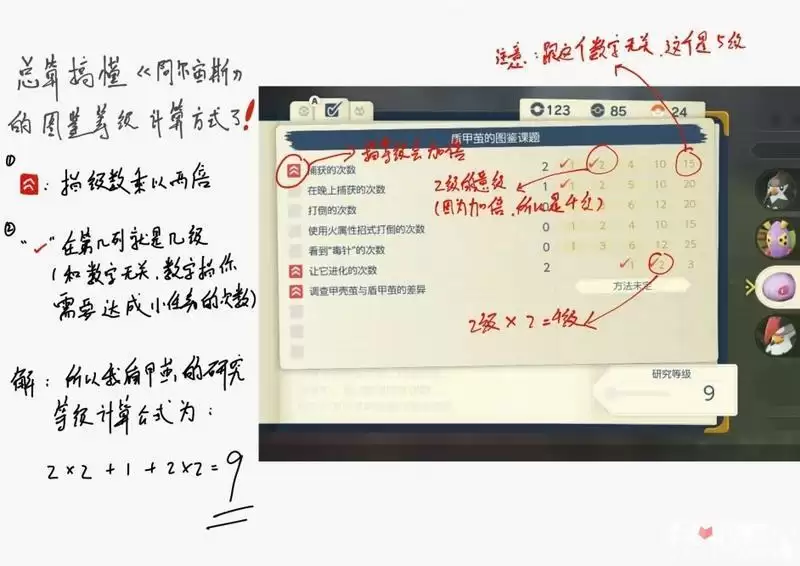 总算搞懂《阿尔宙斯》
的图鉴等级计算方式了!
① : 指级数乘以两倍
② “✓”在第几列就是几级
(和数字无关,数字指你
需要达成小任务的次数)
解: 所以我盾甲茧的研究
等级计算公式为:
2×2+1+2×2=9
注意: 跟这个数字无关,这个是5级
A
123 85 24
盾甲茧的图鉴课题
指等级会加倍
捕获的次数 2 1 2 4 10 15
2级的意级
在晚上捕获的次数 1 1 2 5 10 20
(因为加倍,所以是4级)
打倒的次数 0 6 12 20
使用火属性招式打倒的次数 0 1 2 4 10 15
看到“毒针”的次数 0 1 3 6 12 25
让它进化的次数 2 1 2 3
调查甲壳茧与盾甲茧的差异 方法未定
2级×2=4级
研究等级
9